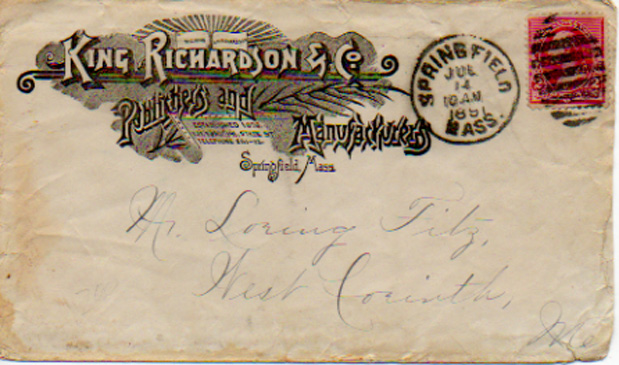 KING RICHARDSON & Co
Publishers and
Manufacturers
ESTABLISHED
Springfield, Mass.
SPRINGFIELD
JUL
14
10AM
1891
MASS.
Mr. Loring Fitz,
West Corinth,
Me